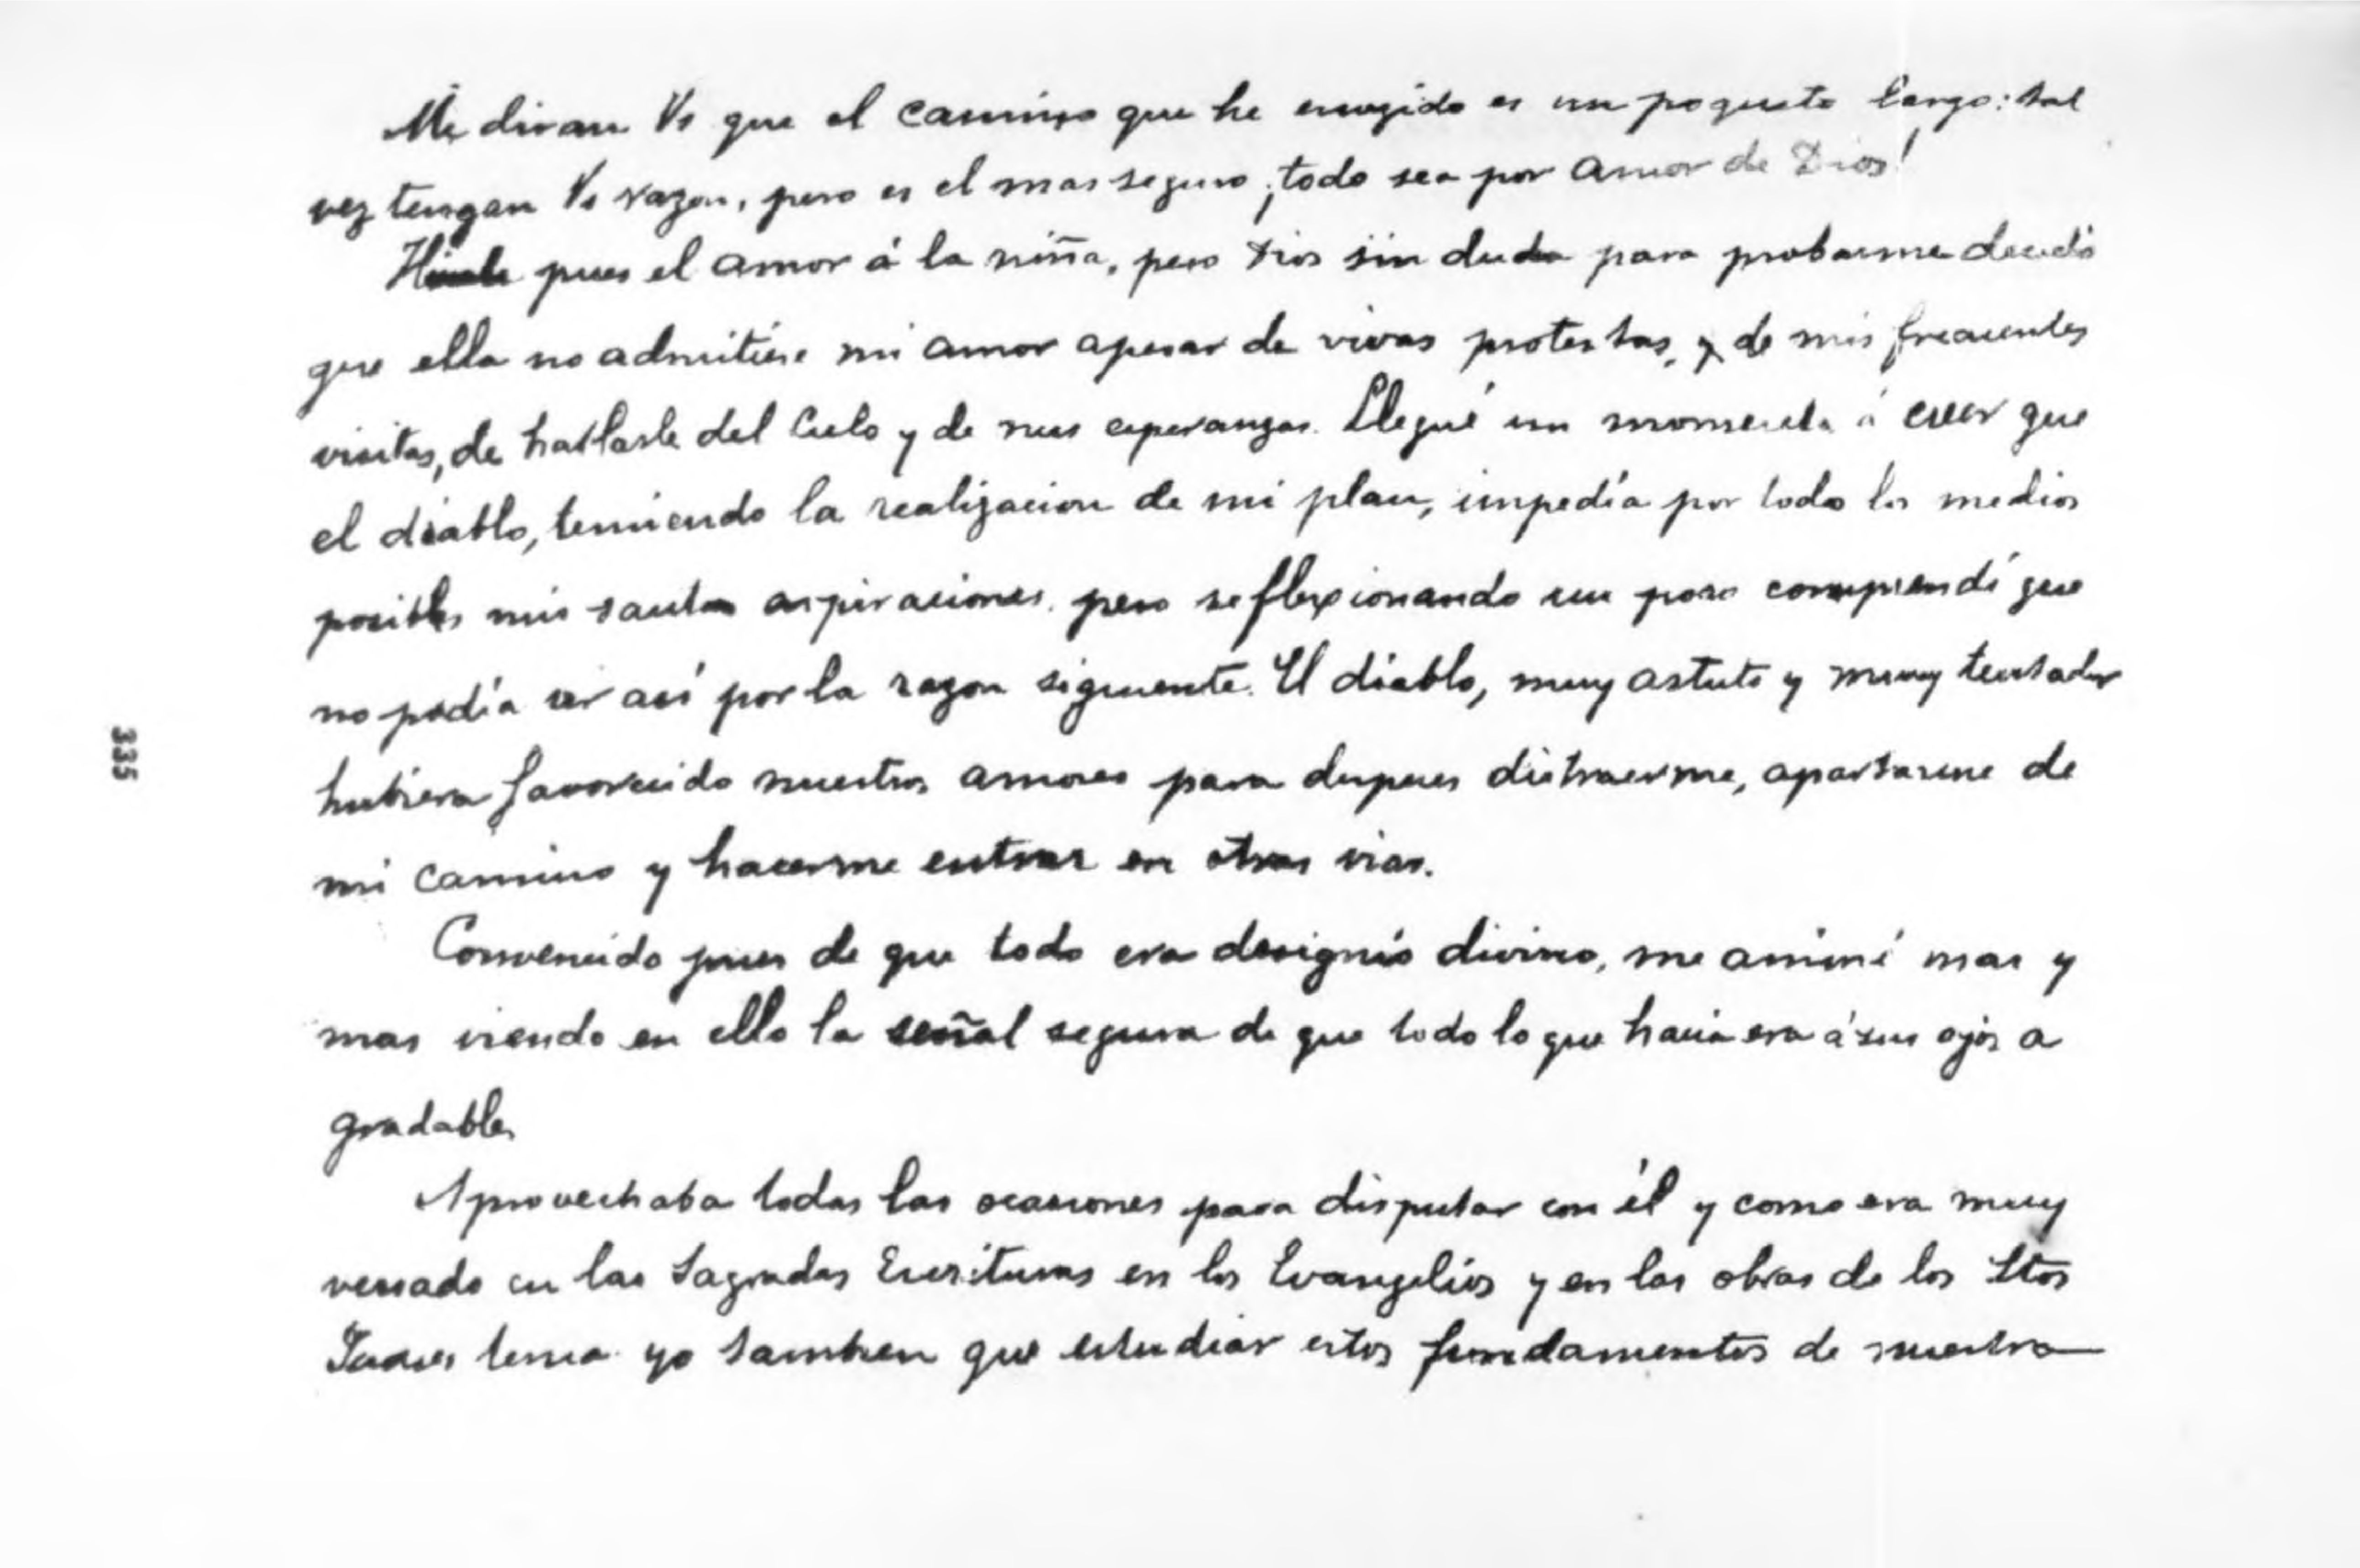 Me diran Vs que el camino que he escogido es un poquito largo: tal
vez tengan Vs razon, pero es el mas seguro ¡todo sea por amor de Dios!
Hicele pues el amor á la niña, pero Dios sin duda para probarme decidió
que ella no admitiese mi amor apesar de vivas protestas, y de mis frecuentes
visitas, de hablarle del Cielo y de mis esperanzas. Llegué un momento á creer que
el diablo, temiendo la realizacion de mi plan, impedía por todos los medios
posibles mis santas aspiraciones, pero reflexionando un poco comprendí que
no podía ser así por la razon siguiente. El diablo, muy astuto y muy tentador
hubiera favorecido nuestros amores para despues distraerme, apartarme de
mi camino y hacerme entrar en otras vias.
Convencido pues de que todo era designio divino, me animé mas y
mas viendo en ello la señal segura de que todo lo que hacia era á sus ojos a
gradable.
Aprovechaba todas las ocasiones para disputar con él y como era muy
versado en las Sagradas Escrituras en los Evangelios y en las obras de los Stos
Padres tenia yo tambien que estudiar estos fundamentos de nuestra
335